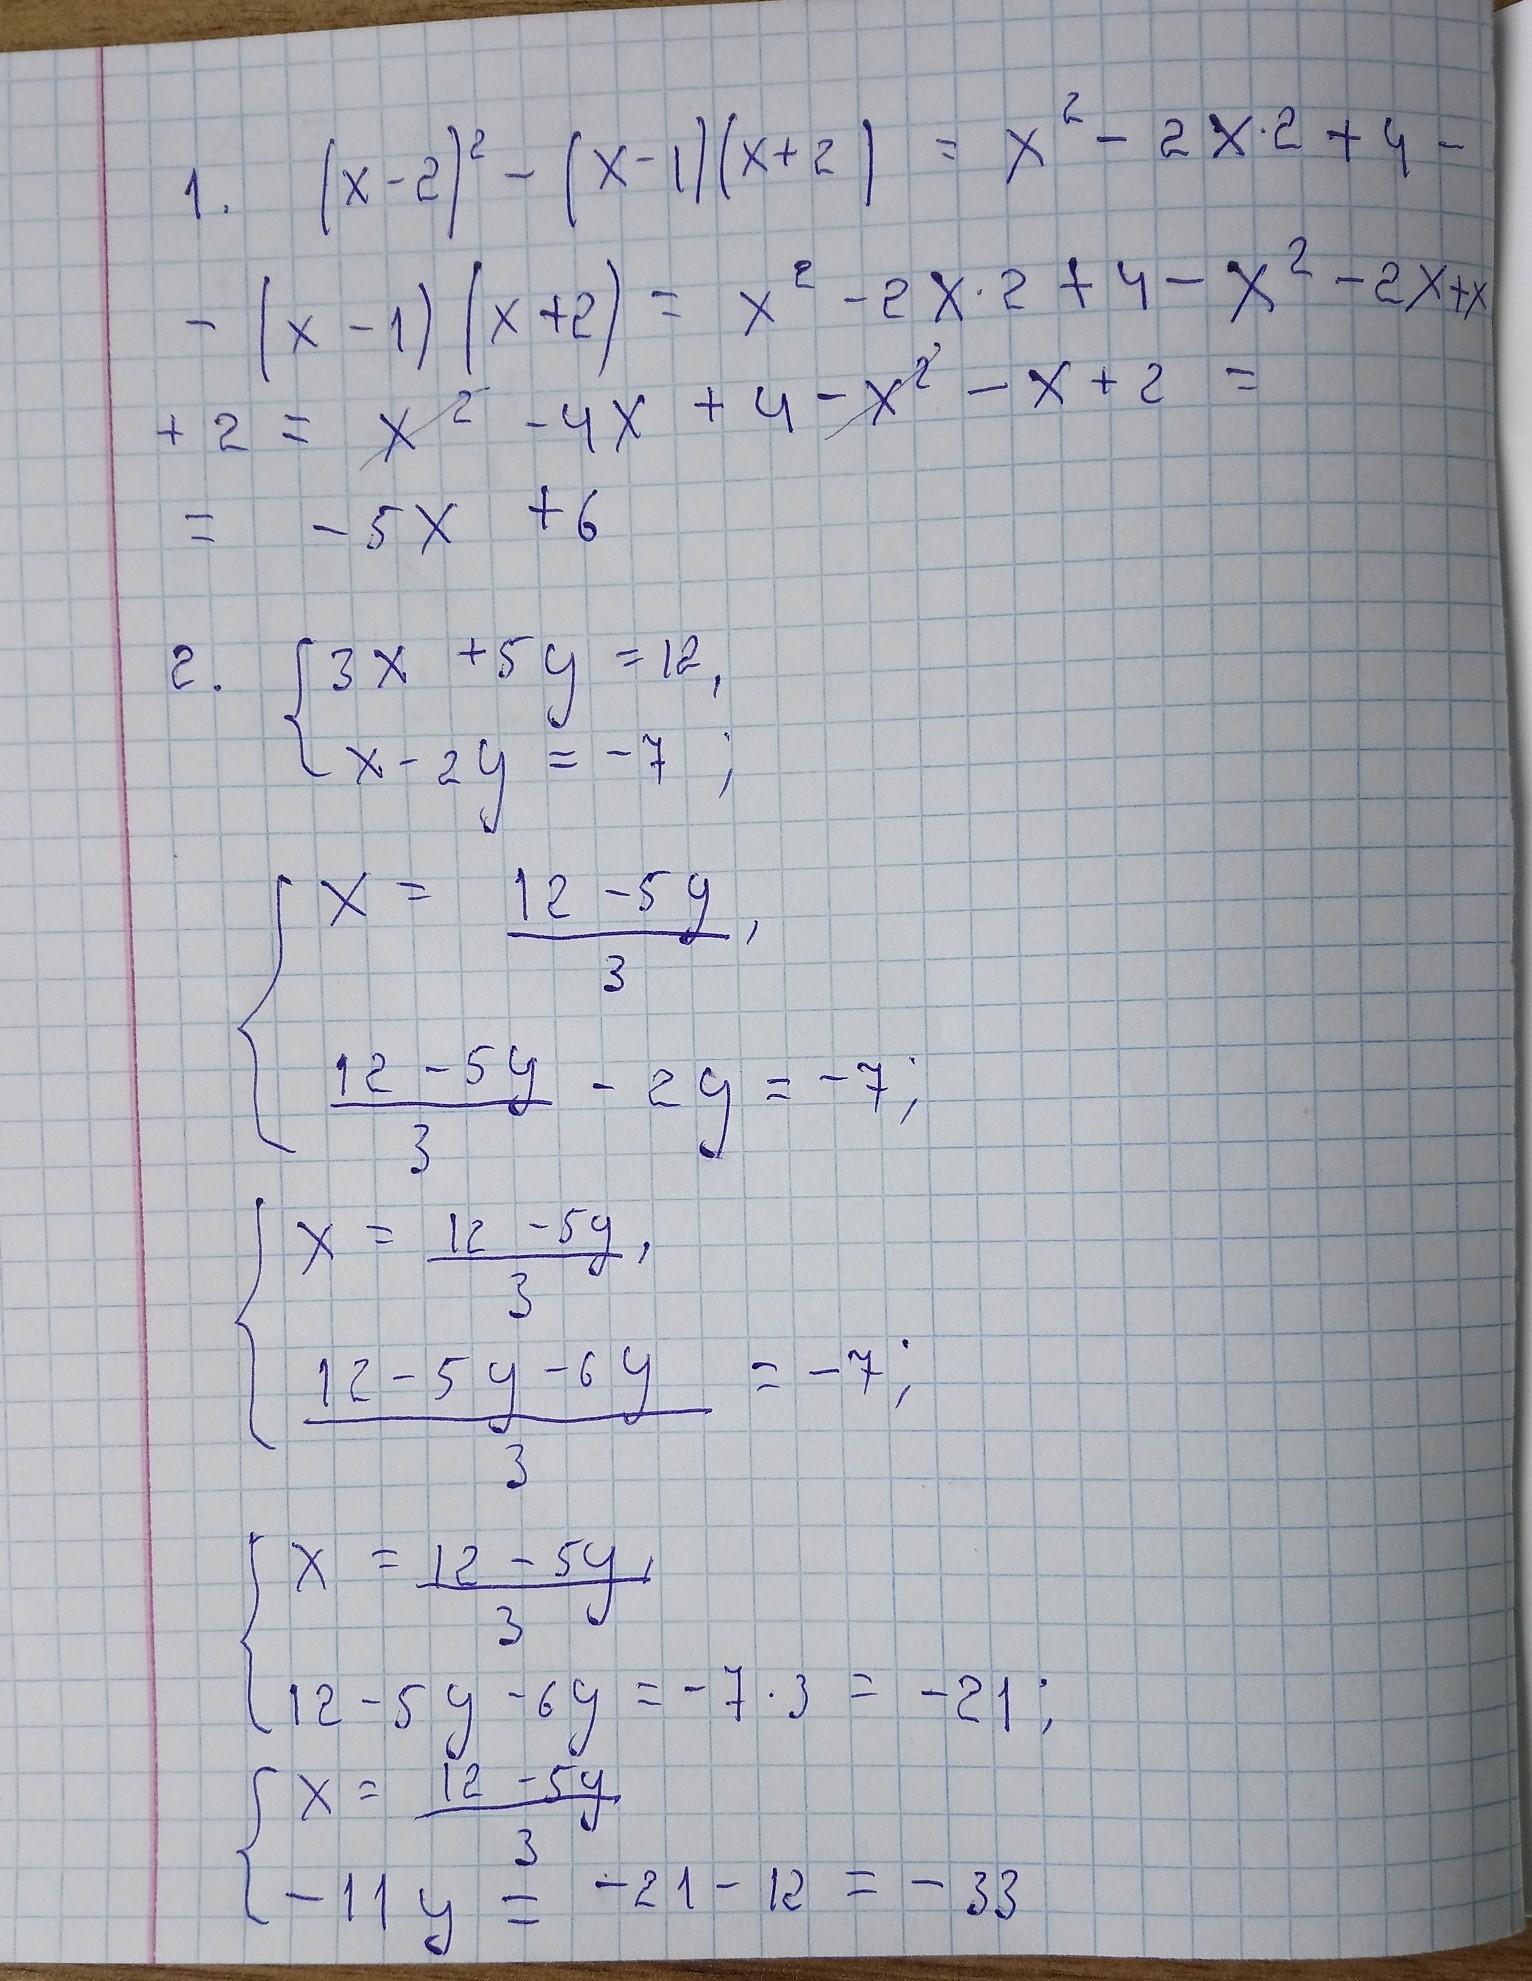 1. (x-2)² - (x-1)(x+2) = x² - 2x·2 + 4 -
- (x-1)(x+2) = x² - 2x·2 + 4 - x² - 2x+x
+2 = x² - 4x + 4 - x² - x + 2 =
= -5x +6
2. {3x +5y = 12,
x - 2y = -7 ;
{x = 12 - 5y,
3
12 - 5y - 2y = -7;
3
{x = 12 - 5y,
3
12 - 5y - 6y = -7;
3
{x = 12 - 5y,
3
12 - 5y - 6y = -7·3 = -21;
{x = 12 - 5y
3
-11y = -21 - 12 = -33